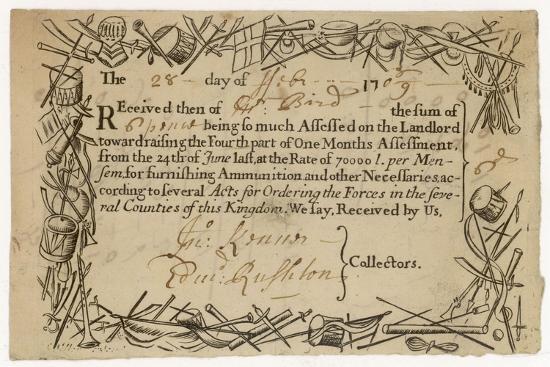 The 28 day of Febr 170 8/9
REceived then of Mr. Bird the sum of
6 pence being so much Assessed on the Landlord
toward raising the Fourth part of One Months Assessment,
from the 24th of June last, at the Rate of 70000 l. per Men-
sem, for furnishing Ammunition and other Necessaries, ac-
cording to several Acts for Ordering the Forces in the seve-
ral Counties of this Kingdom. We say, Received by Us,
6d
Jno. Kenner
Edm: Rushton
Collectors.